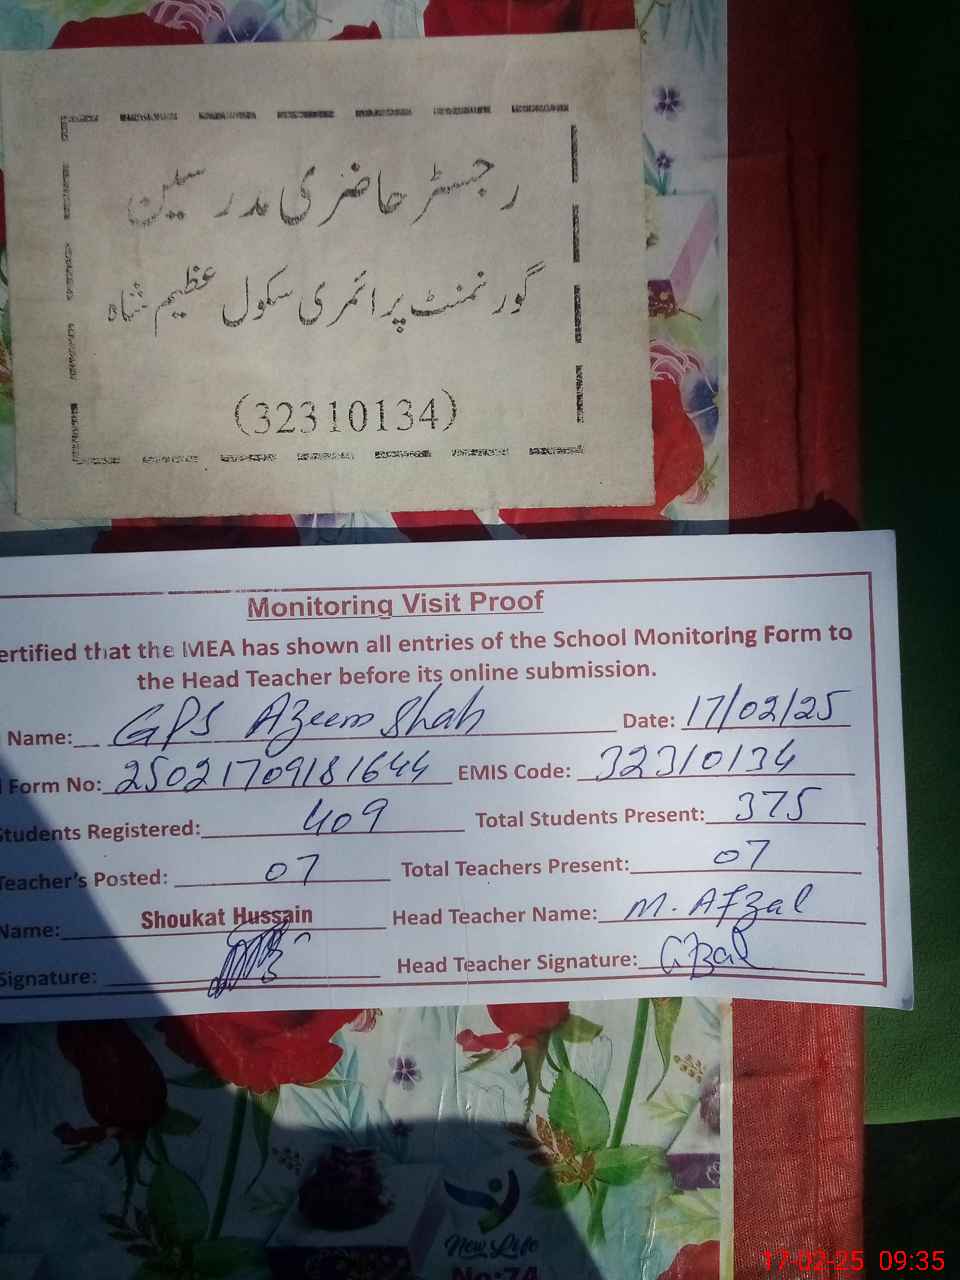 رجسٹر حاضری مدرسین
گورنمنٹ پرائمری سکول عظیم شاہ
(32310134)
Monitoring Visit Proof
ertified that the MEA has shown all entries of the School Monitoring Form to
the Head Teacher before its online submission.
Name: GPS Azeem Shah Date: 17/02/25
Form No: 25021709181644 EMIS Code: 32310134
Students Registered: 409 Total Students Present: 375
Teacher's Posted: 07 Total Teachers Present: 07
Name: Shoukat Hussain Head Teacher Name: M. Afzal
Signature: Head Teacher Signature: Afzal
New Life
No:74
17-02-25 09:35